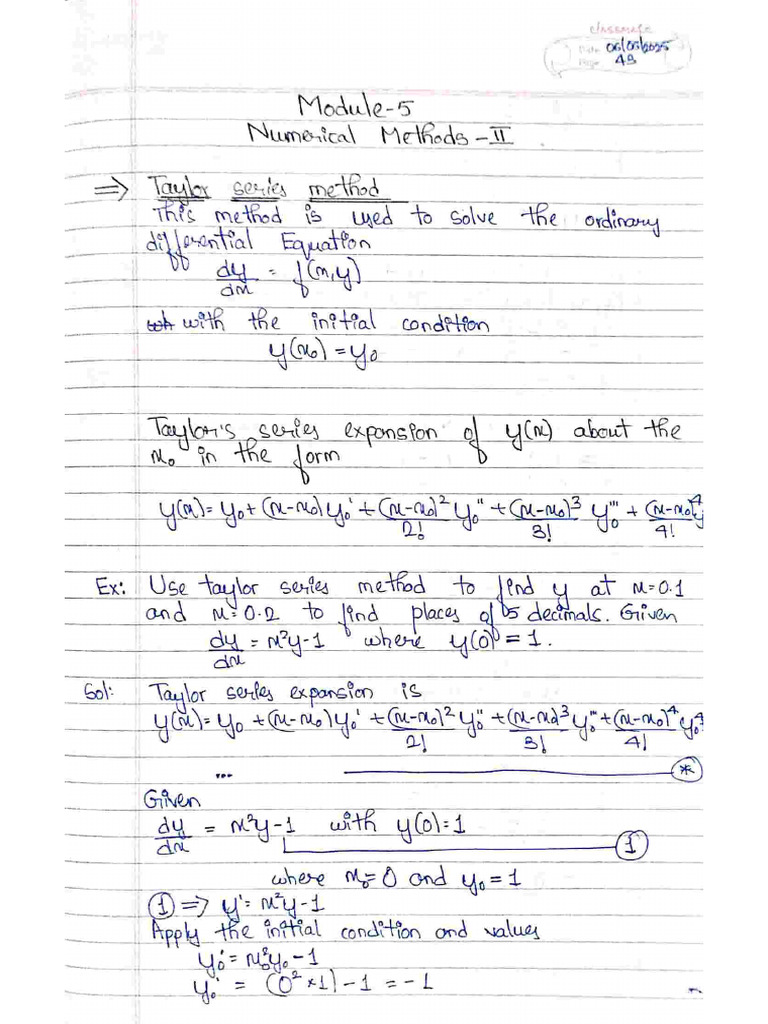 classmate
Date 06/05/2025
Page 49
Module-5
Numerical Methods-II
⇒ Taylor series method
This method is used to solve the ordinary
differential Equation
dy/dx = f(x,y)
with the initial condition
y(x₀) = y₀
Taylor's series expansion of y(x) about the
x₀ in the form
y(x) = y₀ + (x-x₀)y₀' + (x-x₀)²/2! y₀'' + (x-x₀)³/3! y₀''' + (x-x₀)⁴/4! y
Ex: Use taylor series method to find y at x=0.1
and x=0.2 to find places of 5 decimals. Given
dy/dx = x²y-1 where y(0) = 1.
Sol: Taylor series expansion is
y(x) = y₀ + (x-x₀)y₀' + (x-x₀)²/2! y₀'' + (x-x₀)³/3! y₀''' + (x-x₀)⁴/4! y₀⁴
... *
Given
dy/dx = x²y-1 with y(0)=1
1
where x₀=0 and y₀=1
① ⇒ y' = x²y-1
Apply the initial condition and values
y₀' = x₀²y₀-1
y₀' = (0²×1)-1 = -1